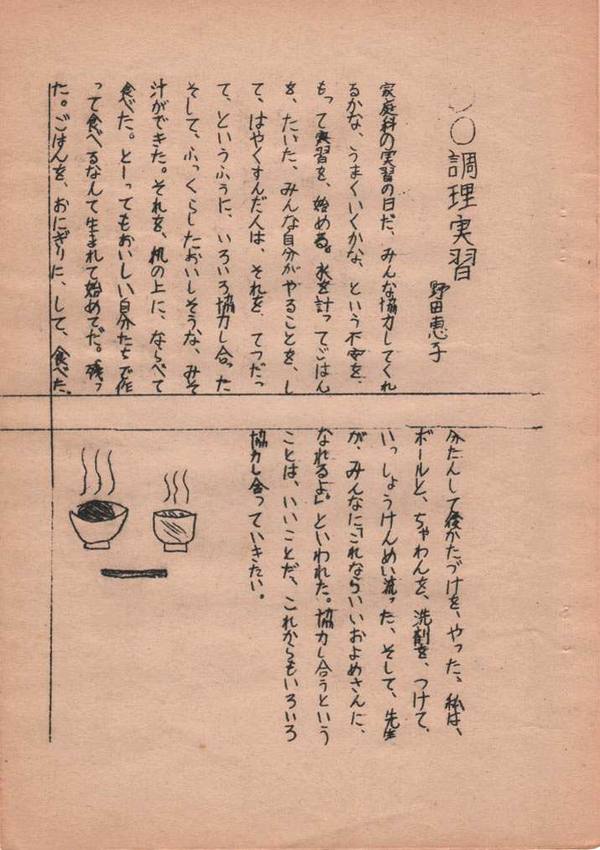 ○調理実習
野田恵子
家庭科の実習の日だ、みんな協力してくれ
るかな、うまくいくかな、という不安を、
もって実習を、始める。水を計ってごはん
を、たいた、みんな自分がやることを、し
て、はやくすんだ人は、それを、てつだっ
て、というふうに、いろいろ協力し合った
そして、ふっくらしたおいしそうな、みそ
汁ができた。それを、机の上に、ならべて
食べた。とーってもおいしい自分たちで作
って食べるなんて生まれて始めてだ。残っ
た。ごはんを、おにぎりに、して、食べた。
分たんして後かたづけを、やった、私は、
ボールと、ちゃわんを、洗剤を、つけて、
いっしょうけんめい洗った、そして、先生
が、みんなに「これならいいおよめさんに、
なれるよ」といわれた。協力し合うという
ことは、いいことだ、これからもいろいろ
協力し合っていきたい。